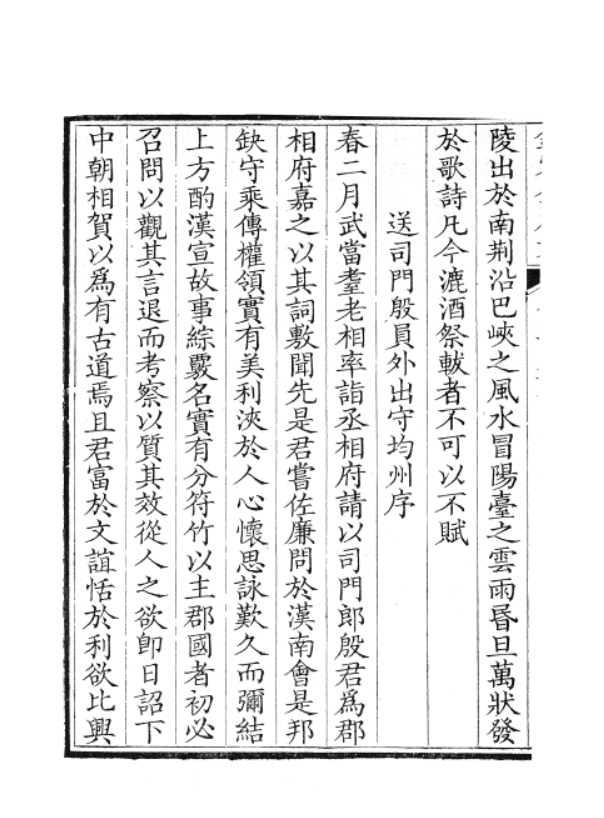 陵出於南荆沿巴峽之風水冒陽臺之雲雨昬旦萬狀發
於歌詩凡今漉酒祭軷者不可以不賦
送司門殷員外出守均州序
春二月武當耋老相率詣丞相府請以司門郎殷君爲郡
相府嘉之以其詞敷聞先是君嘗佐廉問於漢南會是邦
缺守乘傳權領實有美利浹於人心懷思詠歎久而彌結
上方酌漢宣故事綜覈名實有分符竹以主郡國者初必
召問以觀其言退而考察以質其效從人之欲卽日詔下
中朝相賀以爲有古道焉且君富於文誼恬於利欲比興